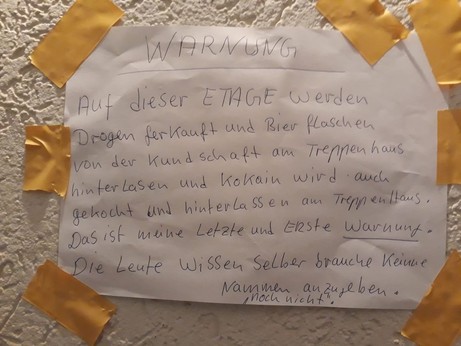 WARNUNG
Auf dieser ETAGE werden
Drogen ferkauft und Bier flaschen
von der Kundschaft am Treppenhaus
hinterlasen und Kokain wird auch
gekocht und hinterlassen am TreppenHaus.
Das ist meine Letzte und Erste Warnung.
Die Leute Wissen Selber brauche Keinne
Nammen anzugeben.
"noch nicht".